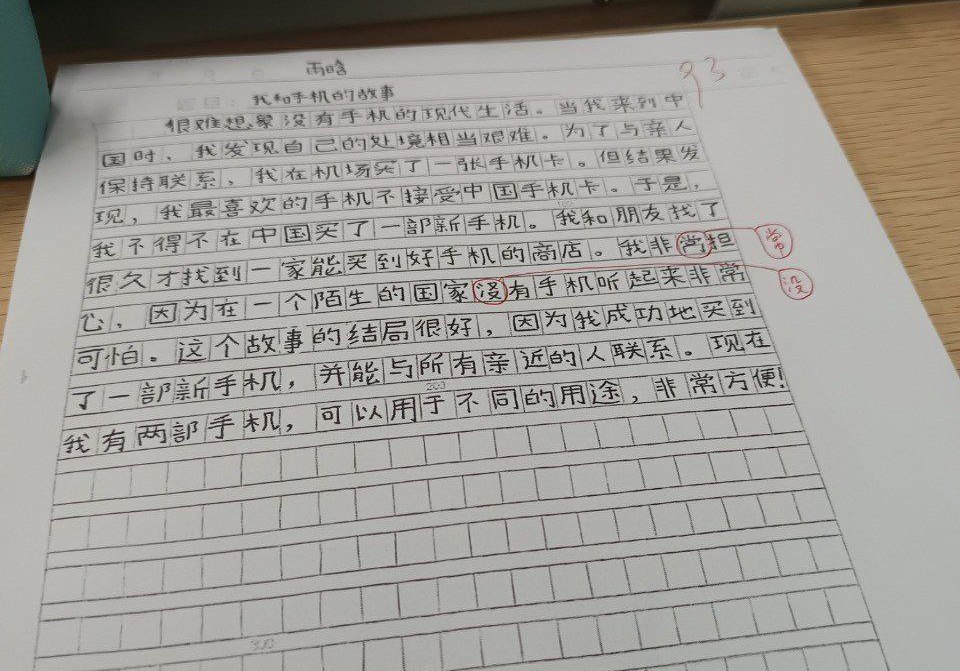 雨晗
93
题目：我和手机的故事
很难想象没有手机的现代生活。当我来到中
国时，我发现自己的处境相当艰难。为了与亲人
保持联系，我在机场买了一张手机卡。但结果发
现，我最喜欢的手机不接受中国手机卡。于是，
我不得不在中国买了一部新手机。我和朋友找了
很久才找到一家能买到好手机的商店。我非常担
常
心，因为在一个陌生的国家没有手机听起来非常
没
可怕。这个故事的结局很好，因为我成功地买到
了一部新手机，并能与所有亲近的人联系。现在
200
我有两部手机，可以用于不同的用途，非常方便！
300